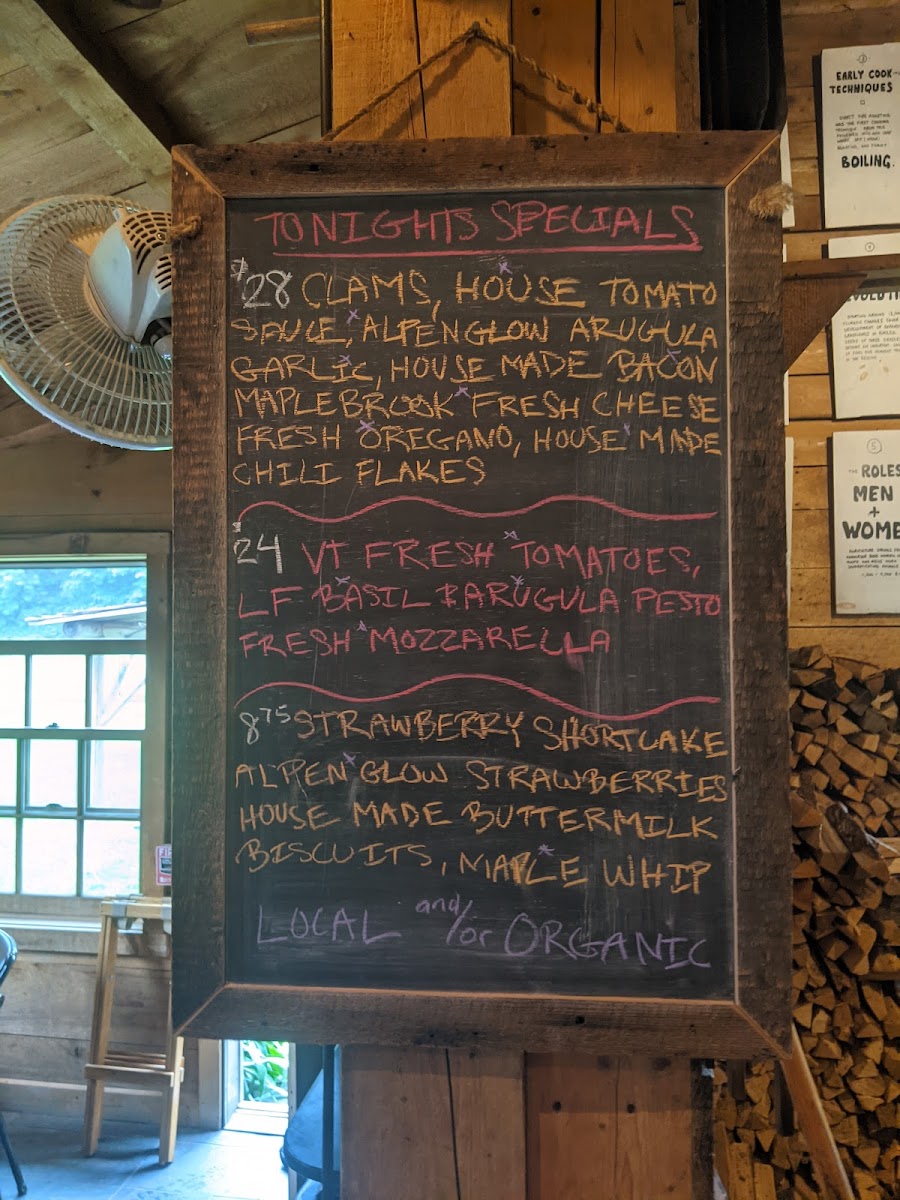 TONIGHTS SPECIALS
$28 CLAMS, HOUSE TOMATO
SAUCE, ALPENGLOW ARUGULA
GARLIC, HOUSE MADE BACON
MAPLEBROOK FRESH CHEESE
FRESH OREGANO, HOUSE MADE
CHILI FLAKES
24 VT FRESH TOMATOES,
LF BASIL & ARUGULA PESTO
FRESH MOZZARELLA
8 75 STRAWBERRY SHORTCAKE
ALPEN GLOW STRAWBERRIES
HOUSE MADE BUTTERMILK
BISCUITS, MAPLE WHIP
LOCAL and/or ORGANIC
EARLY COOK
TECHNIQUES
BOILING.
5
THE ROLES
MEN
+
WOME